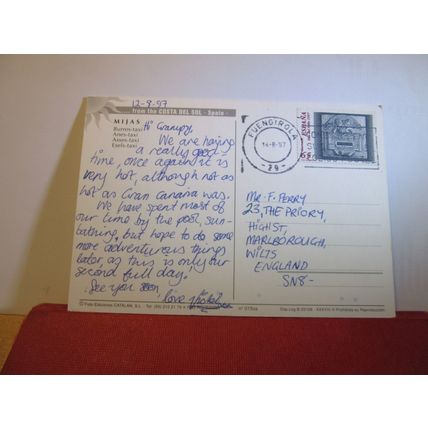 12-9-97
from the COSTA DEL SOL - Spain -
MIJAS
Burros-taxi
Anes-taxi
Esels-taxi
Hi Grampy,
We are having
a really good
time, once again it is
very hot, although not as
hot as Gran Canaria was.
We have spent most of
our time by the pool, sun-
bathing, but hope to do some
more adventurous things
later, as this is only our
second full day!
See you soon
love
FUENGIROLA
-29-
ESPAÑA
65
Mr F. PERRY
23, THE PRIORY,
HIGH ST,
MARLBOROUGH,
WILTS
ENGLAND
SN8-
CATALAN, S.L.